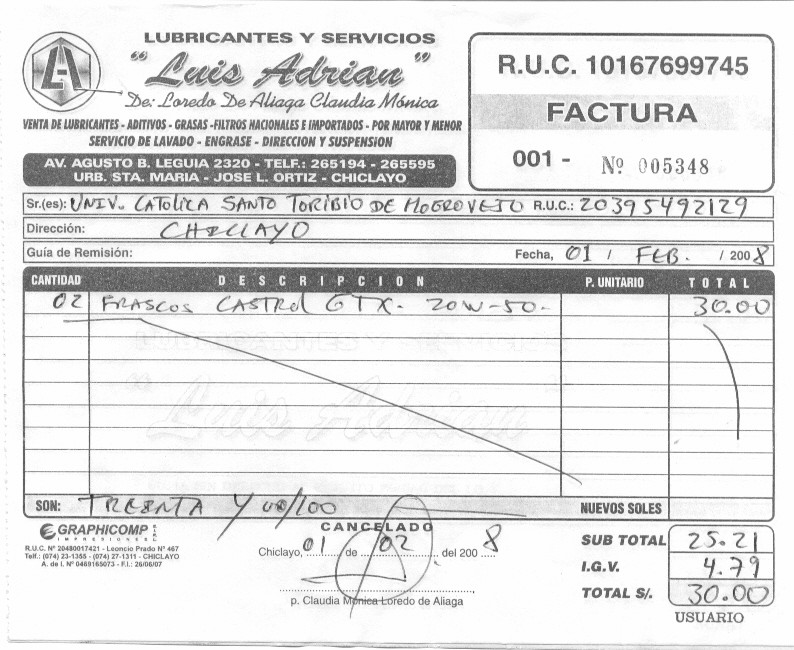 LUBRICANTES Y SERVICIOS
LA "Luis Adrian"
De: Loredo De Aliaga Claudia Mónica
VENTA DE LUBRICANTES - ADITIVOS - GRASAS -FILTROS NACIONALES E IMPORTADOS - POR MAYOR Y MENOR
SERVICIO DE LAVADO - ENGRASE - DIRECCION Y SUSPENSION
AV. AGUSTO B. LEGUIA 2320 - TELF.: 265194 - 265595
URB. STA. MARIA - JOSE L. ORTIZ - CHICLAYO
R.U.C. 10167699745
FACTURA
001 - Nº 005348
Sr.(es): UNIV. CATOLICA SANTO TORIBIO DE MOGROVEJO R.U.C.: 20395492129
Dirección: CHICLAYO
Guía de Remisión: Fecha, 01 / FEB. / 2008
CANTIDAD DESCRIPCION P. UNITARIO TOTAL
02 FRASCOS CASTROL GTX- 20W-50- 30.00
SON: TREINTA Y 00/100 NUEVOS SOLES
GRAPHICOMP S.R.L.
IMPRESIONES
R.U.C. Nº 20480017421 - Leoncio Prado Nº 467
Telf.: (074) 23-1355 - (074) 27-1311 - CHICLAYO
A. de I. Nº 0469165073 - F.I.: 26/06/07
CANCELADO
Chiclayo, 01 de 02 del 2008
p. Claudia Mónica Loredo de Aliaga
SUB TOTAL 25.21
I.G.V. 4.79
TOTAL S/. 30.00
USUARIO